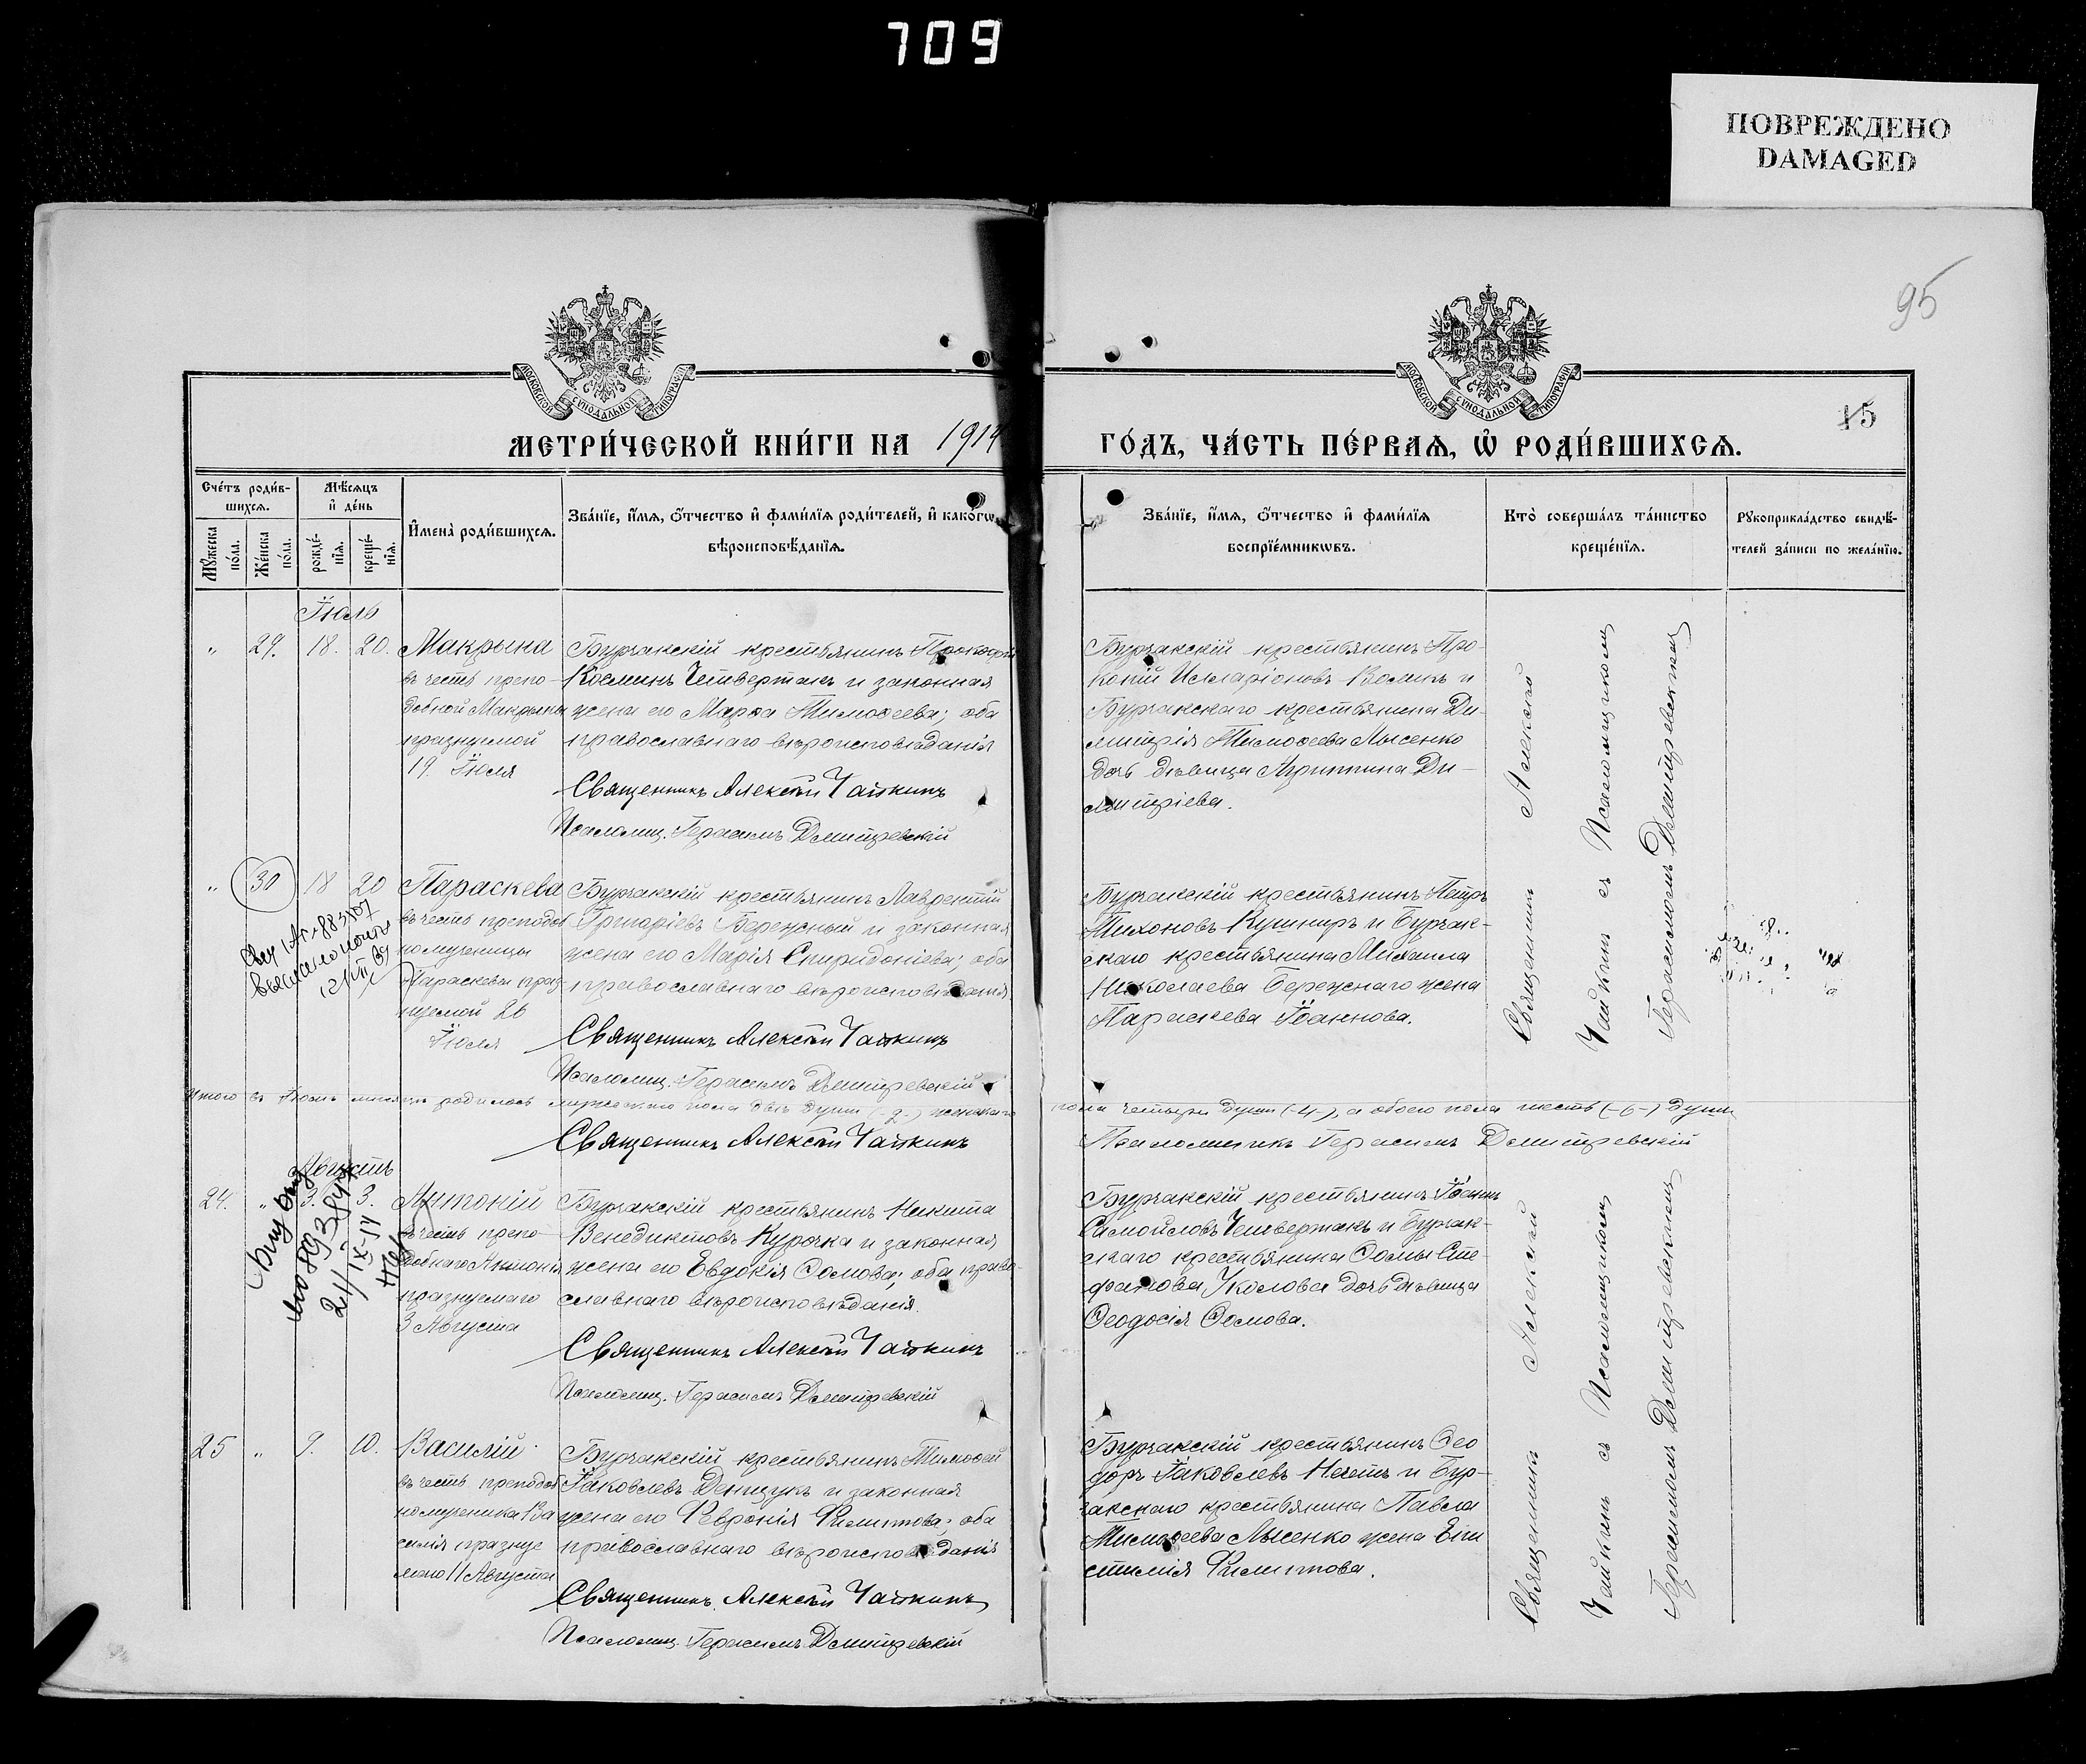 709
ПОВРЕЖДЕНО
DAMAGED
95
МОСКОВСКОЙ СУНОДАЛЬНОЙ ТИПОГРАФІИ
МОСКОВСКОЙ СУНОДАЛЬНОЙ ТИПОГРАФІИ
15
МЕТРИ́ЧЕСКОЙ КНИ́ГИ НА 1914
ГО́ДЪ, ЧА́СТЬ ПЕ́РВАѦ, Ѡ҆ РОДИ́ВШИХСѦ.
Сче́тъ роди́в-
шихсѧ.
Мѣ́сѧцъ
и҆ де́нь
Мꙋ́жеска
по́ла.
Же́нска
по́ла.
рожде́-
нїѧ.
креще́-
нїѧ.
И҆мена̀ роди́вшихсѧ.
Зва́нїе, и҆́мѧ, ѻ҆́тчество и҆ фами́лїѧ роди́телей, и҆ како́гѡ
вѣроисповѣ́данїѧ.
Зва́нїе, и҆́мѧ, ѻ҆́тчество и҆ фами́лїѧ
воспрїе́мникѡвъ.
Кто̀ соверша́лъ та́инство
креще́нїѧ.
Рꙋкоприкла́дство свидѣ́-
телей за́писи по жела́нїю.
Іюль
" 29. 18. 20. Макрына
въ честь препо-
добной Макрыны
празнуемой
19. Іюля
Бурчакскій крестьянинъ Прокофій
Косминъ Четвертакъ и законная
жена его Марѳа Тимоѳеева; оба
православнаго вѣроисповѣданія
Священникъ Алексѣй Чайкинъ
Псаломщ. Герасимъ Дмитревскій
Бурчакскій крестьянинъ Про-
копій Илларіоновъ и
Бурчакскаго крестьянина Ди-
митрія Тимоѳеева Лысенко
дочь дѣвица Агриппина Ди-
митріева.
" 30 18 20 Параскева
въ честь преподоб
номученицы
Параскевы праз-
нуемой 26
Іюля
Бурчакскій крестьянинъ Лаврентій
Григоріевъ Бережный и законная
жена его Марія Спиридоніева; оба
православнаго вѣроисповѣданія.
Священникъ Алексѣй Чайкинъ
Псаломщ. Герасимъ Дмитревскій
Бурчакскій крестьянинъ Петръ
Тихоновъ Кушниръ и Бурчак-
скаго крестьянина Михаила
Николаева Бережнаго жена
Параскева Іоаннова.
Священникъ Алексѣй
Чайкинъ съ Псаломщикомъ
Герасимомъ Дмитревскимъ
Итого въ Іюлѣ мѣсяцѣ родилось мужескаго пола двѣ души (-2-) женскаго пола четыри души (-4-), а обоего пола шесть (-6-) душъ
Священникъ Алексѣй Чайкинъ
Псаломщикъ Герасимъ Дмитревскій
Августъ
24. " 3. 3. Антоній
въ честь препо-
добнаго Антонія
празнуемаго
3 Августа
Бурчакскій крестьянинъ Никита
Венедиктовъ Курочка и законная
жена его Евдокія Ѳомова; оба право-
славнаго вѣроисповѣданія.
Священникъ Алексѣй Чайкинъ
Псаломщ. Герасимъ Дмитревскій
Бурчакскій крестьянинъ Іоаннъ
Самойловъ Четвертакъ и Бурчак-
скаго крестьянина Ѳомы Сте-
фанова Уколова дочь дѣвица
Ѳеодосія Ѳомова.
25 " 9. 10. Василій
въ честь преподоб
номученика Ва
силія празнуе
маго 11 Августа
Бурчакскій крестьянинъ Тимоѳей
Іаковлевъ Денщукъ и законная
жена его Февронія Филиппова; оба
православнаго вѣроисповѣданія
Священникъ Алексѣй Чайкинъ
Псаломщ. Герасимъ Дмитревскій
Бурчакскій крестьянинъ Ѳео
доръ Іаковлевъ и Бур-
чакскаго крестьянина Павла
Тимоѳеева Лысенко жена Епи
стимія Филиппова.
Священникъ Алексѣй
Чайкинъ съ Псаломщикомъ
Герасимомъ Дмитревскимъ